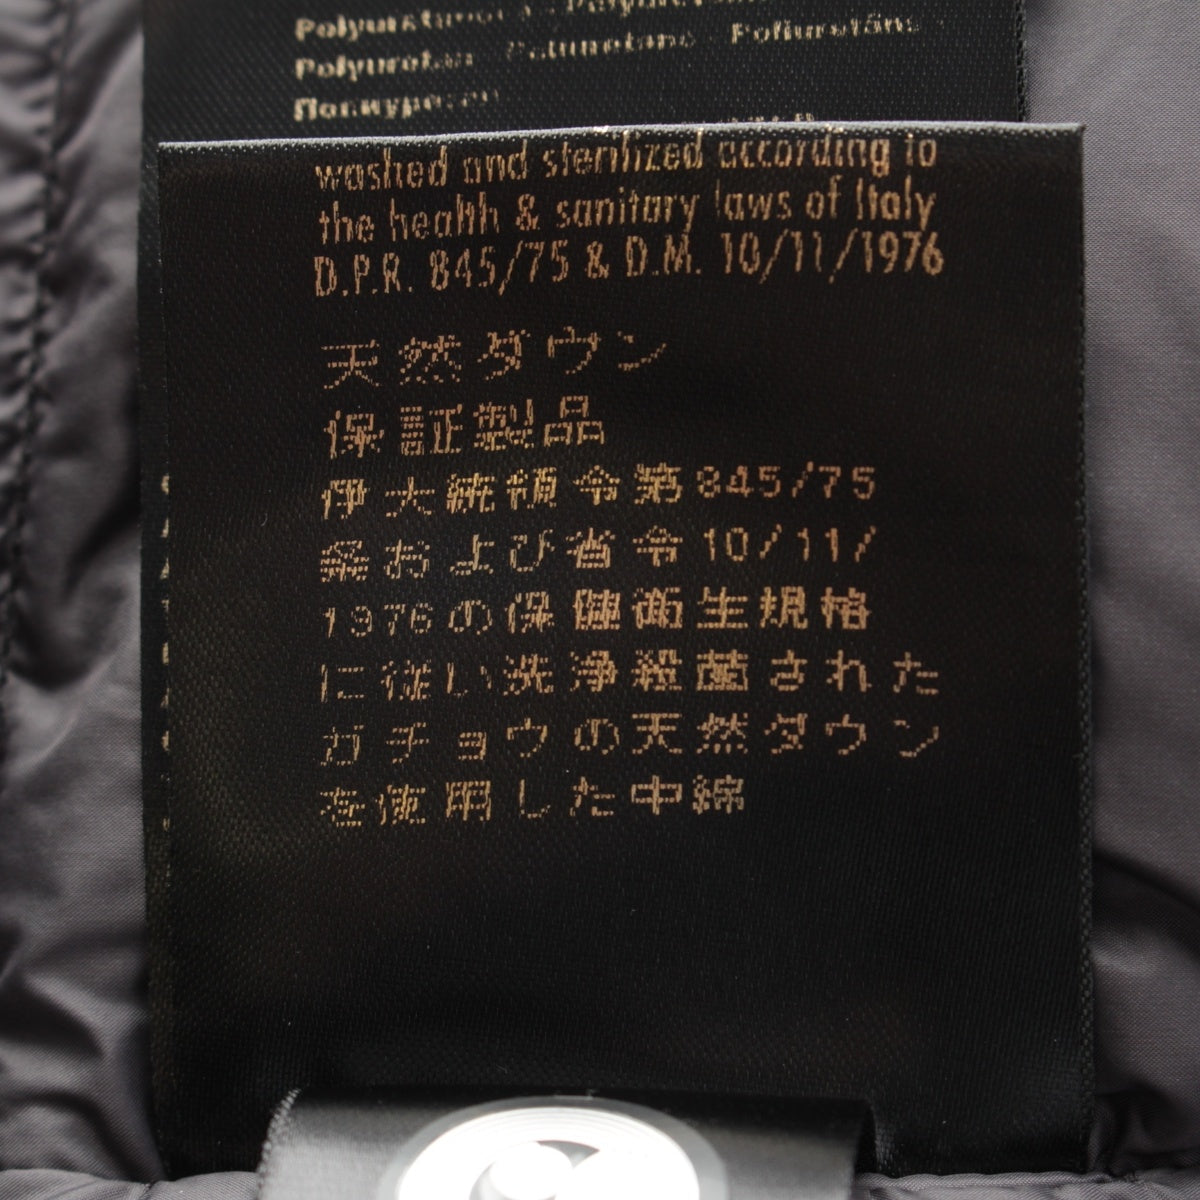 Polyurotan Poliuretano Poliuretāns
washed and sterilized according to
the health & sanitary laws of Italy
D.P.R. 845/75 & D.M. 10/11/1976
天然ダウン
保証製品
伊大統領令第845/75
条および省令10/11/
1976の保健衛生規格
に従い洗浄殺菌された
ガチョウの天然ダウン
を使用した中綿